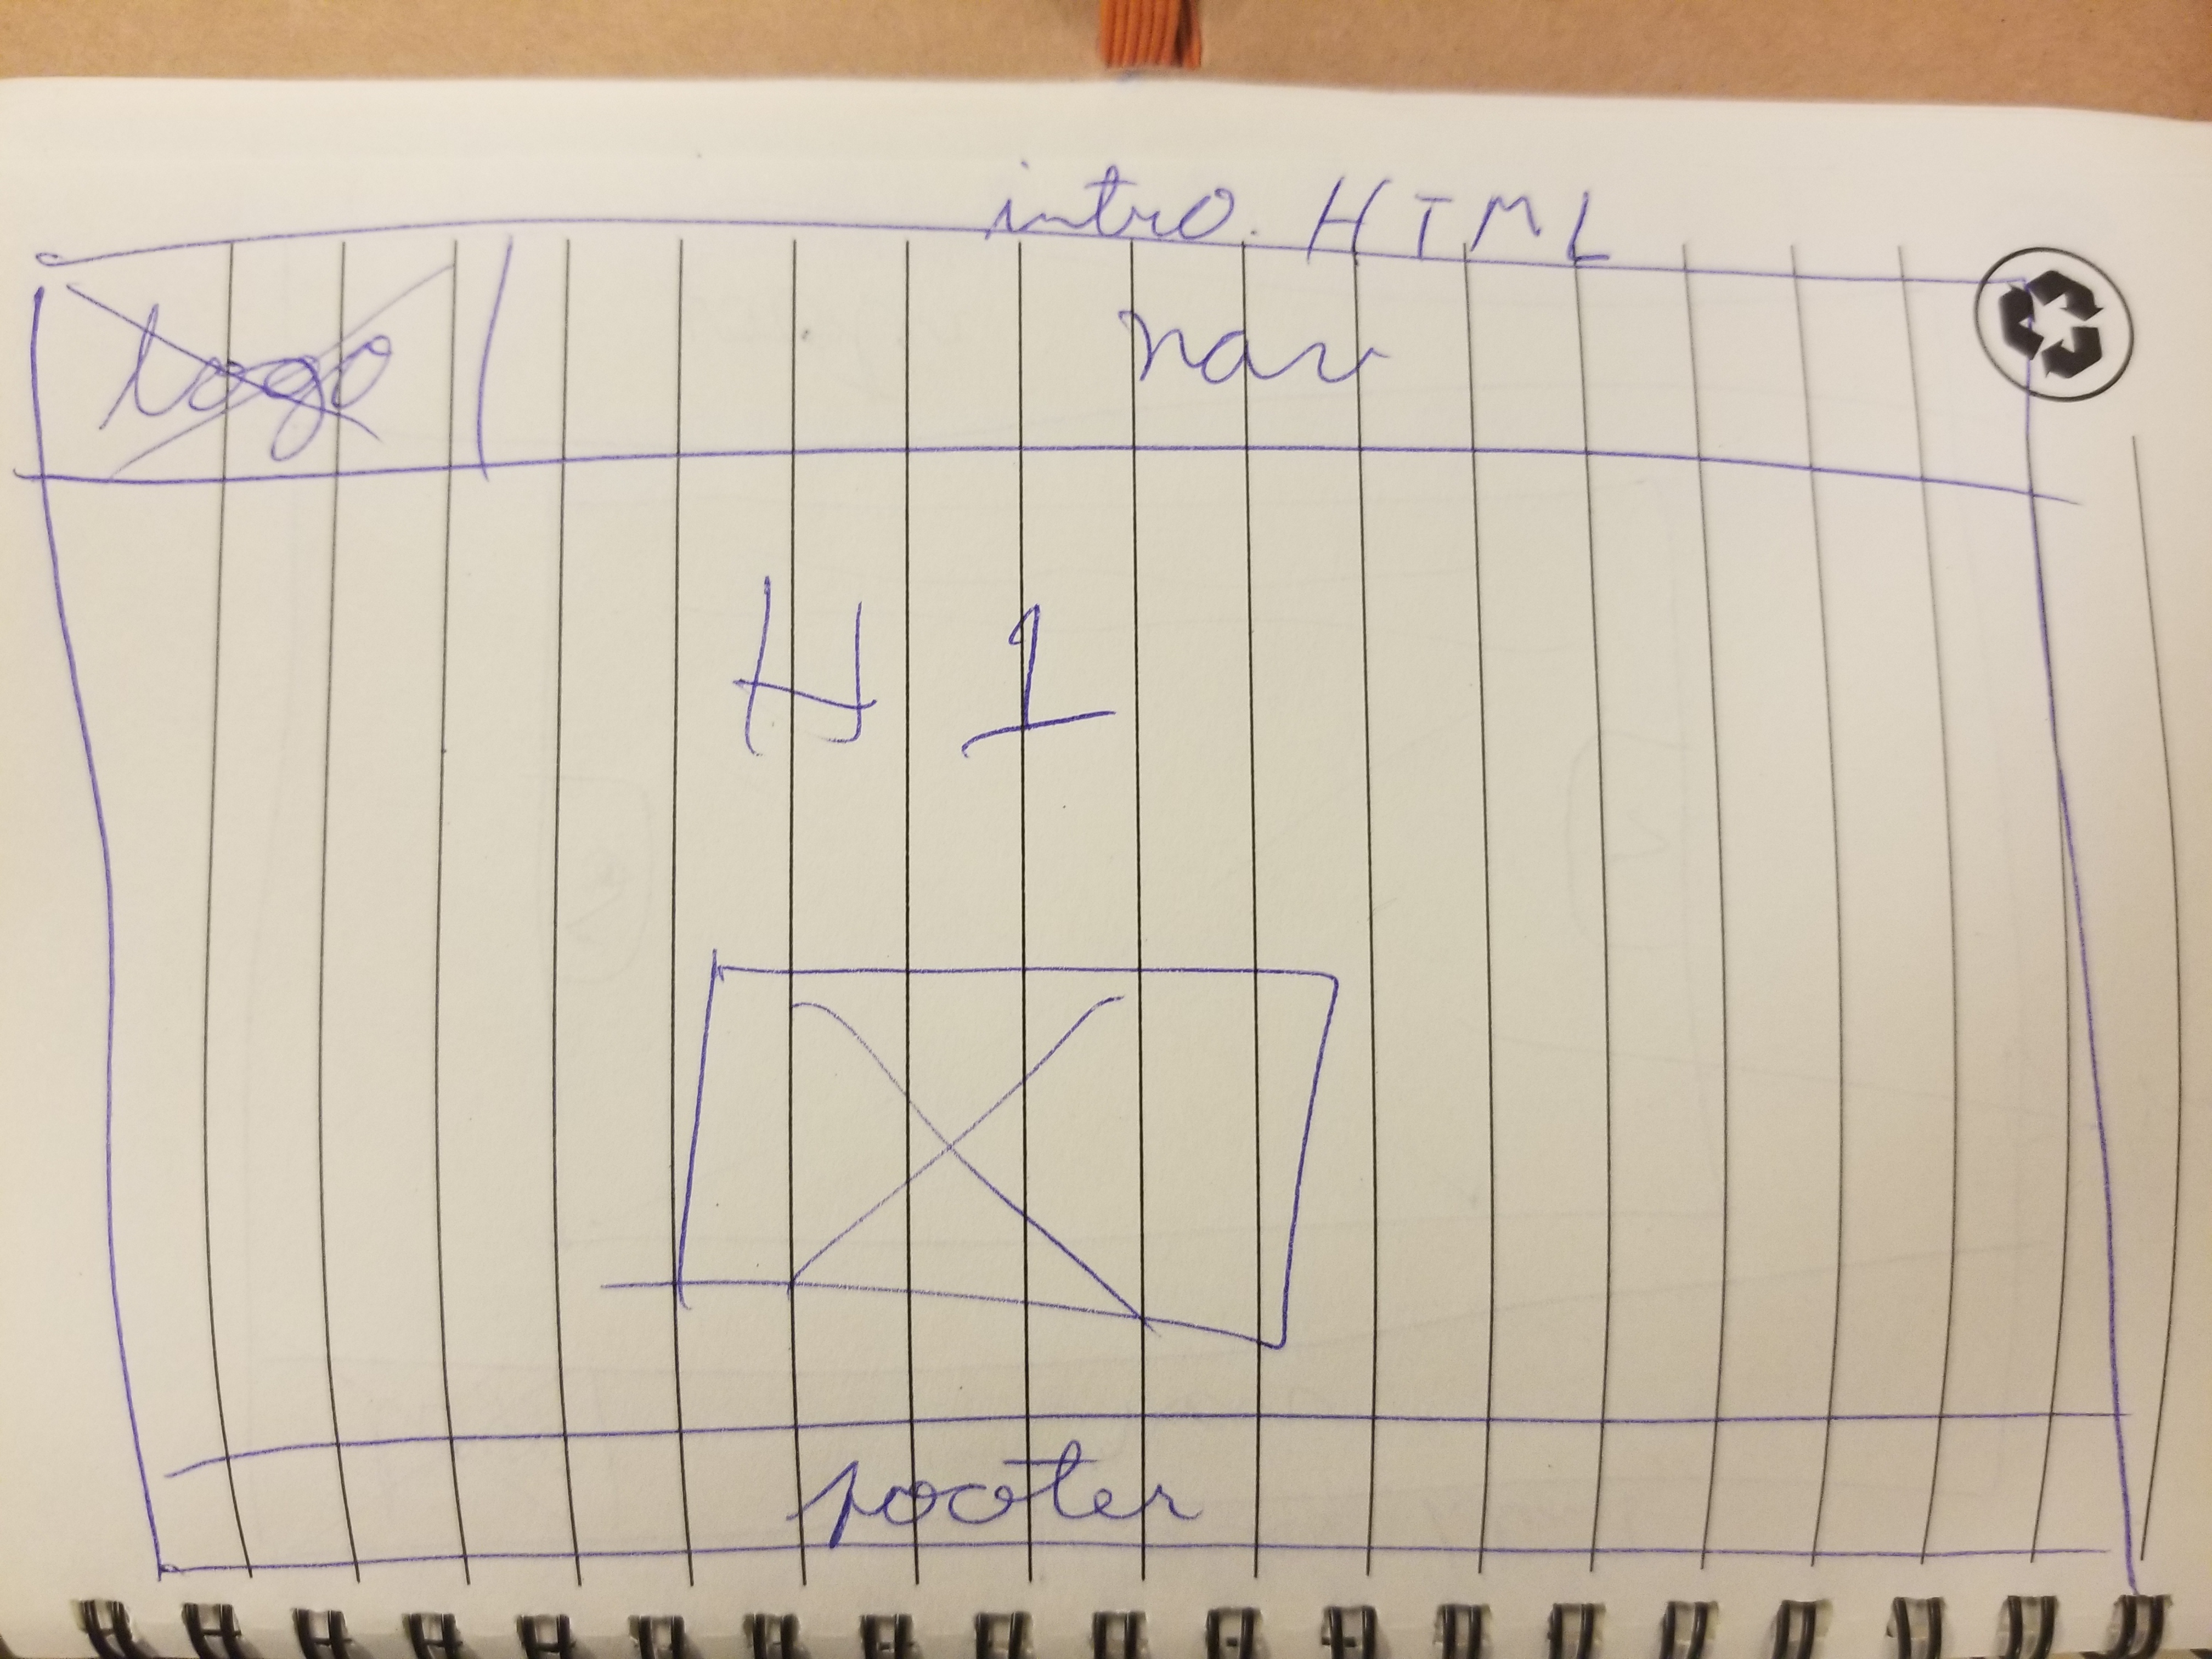 intro. HTML
logo
nav
H 1
footer